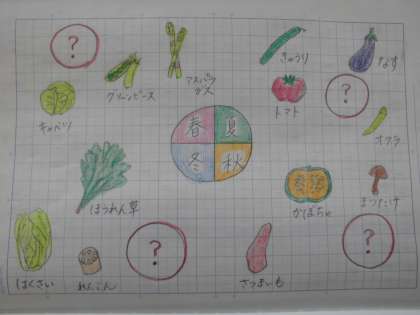 ?
アスパラ
ガス
グリーンピース
キャベツ
きゅうり
なす
トマト
?
オクラ
春
夏
冬
秋
ほうれん草
かぼちゃ
まつたけ
はくさい
れんこん
?
さつまいも
?